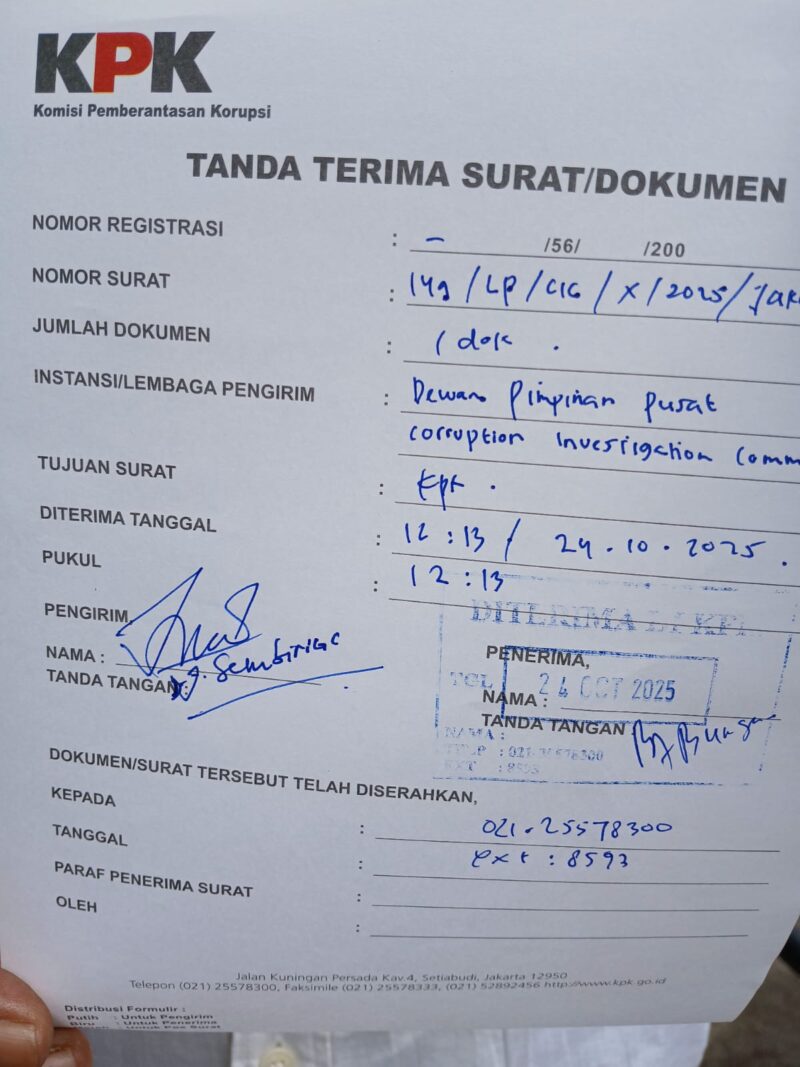 KPK
Komisi Pemberantasan Korupsi
TANDA TERIMA SURAT/DOKUMEN
NOMOR REGISTRASI : - /56/ /200
NOMOR SURAT : 149/LP/CIC/X/2025/JAK
JUMLAH DOKUMEN : 1 dok .
INSTANSI/LEMBAGA PENGIRIM : Dewan Pimpinan Pusat
corruption Investigation Comm
TUJUAN SURAT : KPK .
DITERIMA TANGGAL : 12:13 / 24.10.2025.
PUKUL : 12:13
DITERIMA DI KPK
PENGIRIM,
PENERIMA,
NAMA :
Sembiring
TGL 24 OCT 2025
NAMA :
TANDA TANGAN :
TANDA TANGAN
NAMA :
TELP : 021-25578300
EXT : 8593
DOKUMEN/SURAT TERSEBUT TELAH DISERAHKAN,
KEPADA : 021.25578300
TANGGAL : ext : 8593
PARAF PENERIMA SURAT :
OLEH :
Jalan Kuningan Persada Kav.4, Setiabudi, Jakarta 12950
Telepon (021) 25578300, Faksimile (021) 25578333, (021) 52892456 http://www.kpk.go.id
Distribusi Formulir :
Putih : Untuk Pengirim
Biru : Untuk Penerima
: Untuk Pos Surat